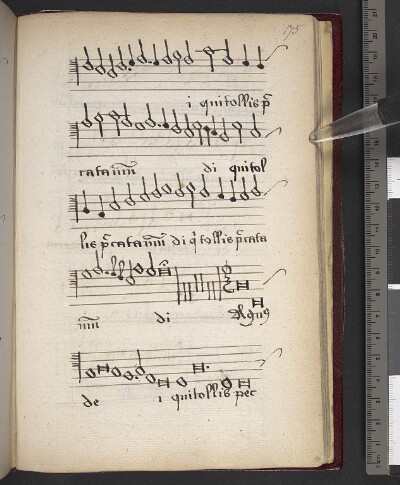 75
i quitollis p̄
cata mūn di quitol
lis p̄cata mūn di q̄ tollis p̄cata
mūn di Agnus
de i quitollis pec